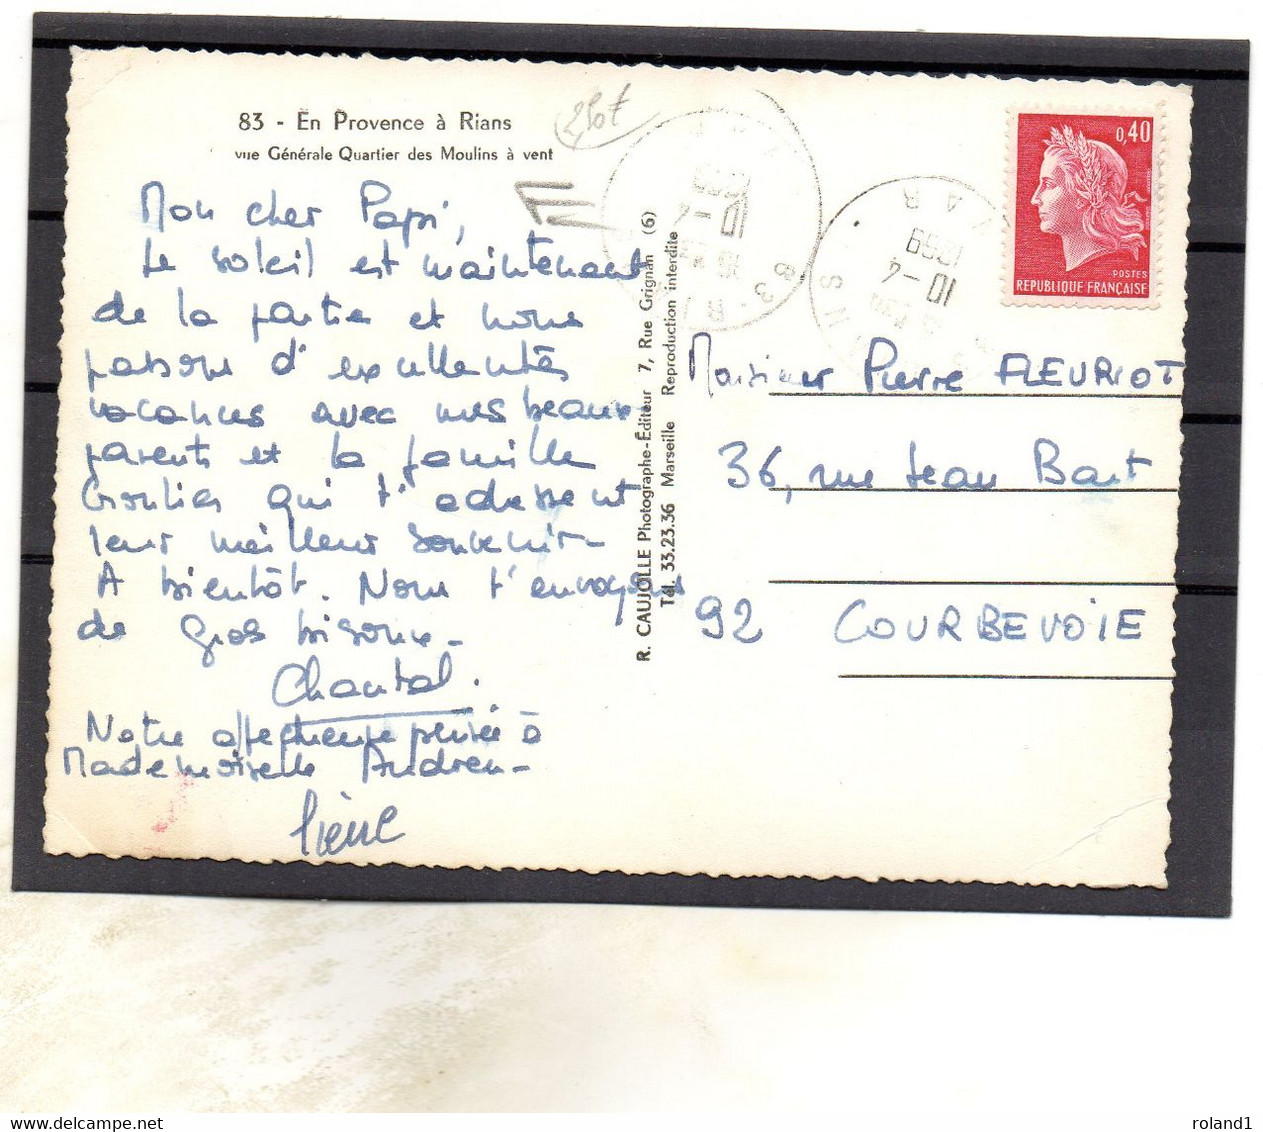 83 - En Provence à Rians
vue Générale Quartier des Moulins à vent
Mon cher Papi,
Le soleil est maintenant
de la partie et nous
passons d'excellentes
vacances avec mes beaux-
parents et la famille
qui t'adressent
leur meilleur souvenir-
A bientôt. Nous t'envoyons
de gros bisous-
Chantal.
Notre affectueuse pensée à
Mademoiselle Andrau-
Pierre
R. CAUJOLLE Photographe-Éditeur 7, Rue Grignan (6)
Tél. 33.23.36 Marseille Reproduction interdite
0,40
POSTES
REPUBLIQUE FRANÇAISE
83-RIANS
VAR
10-4
1969
Monsieur Pierre FLEURIOT
36, rue Jean Bart
92 COURBEVOIE
roland1